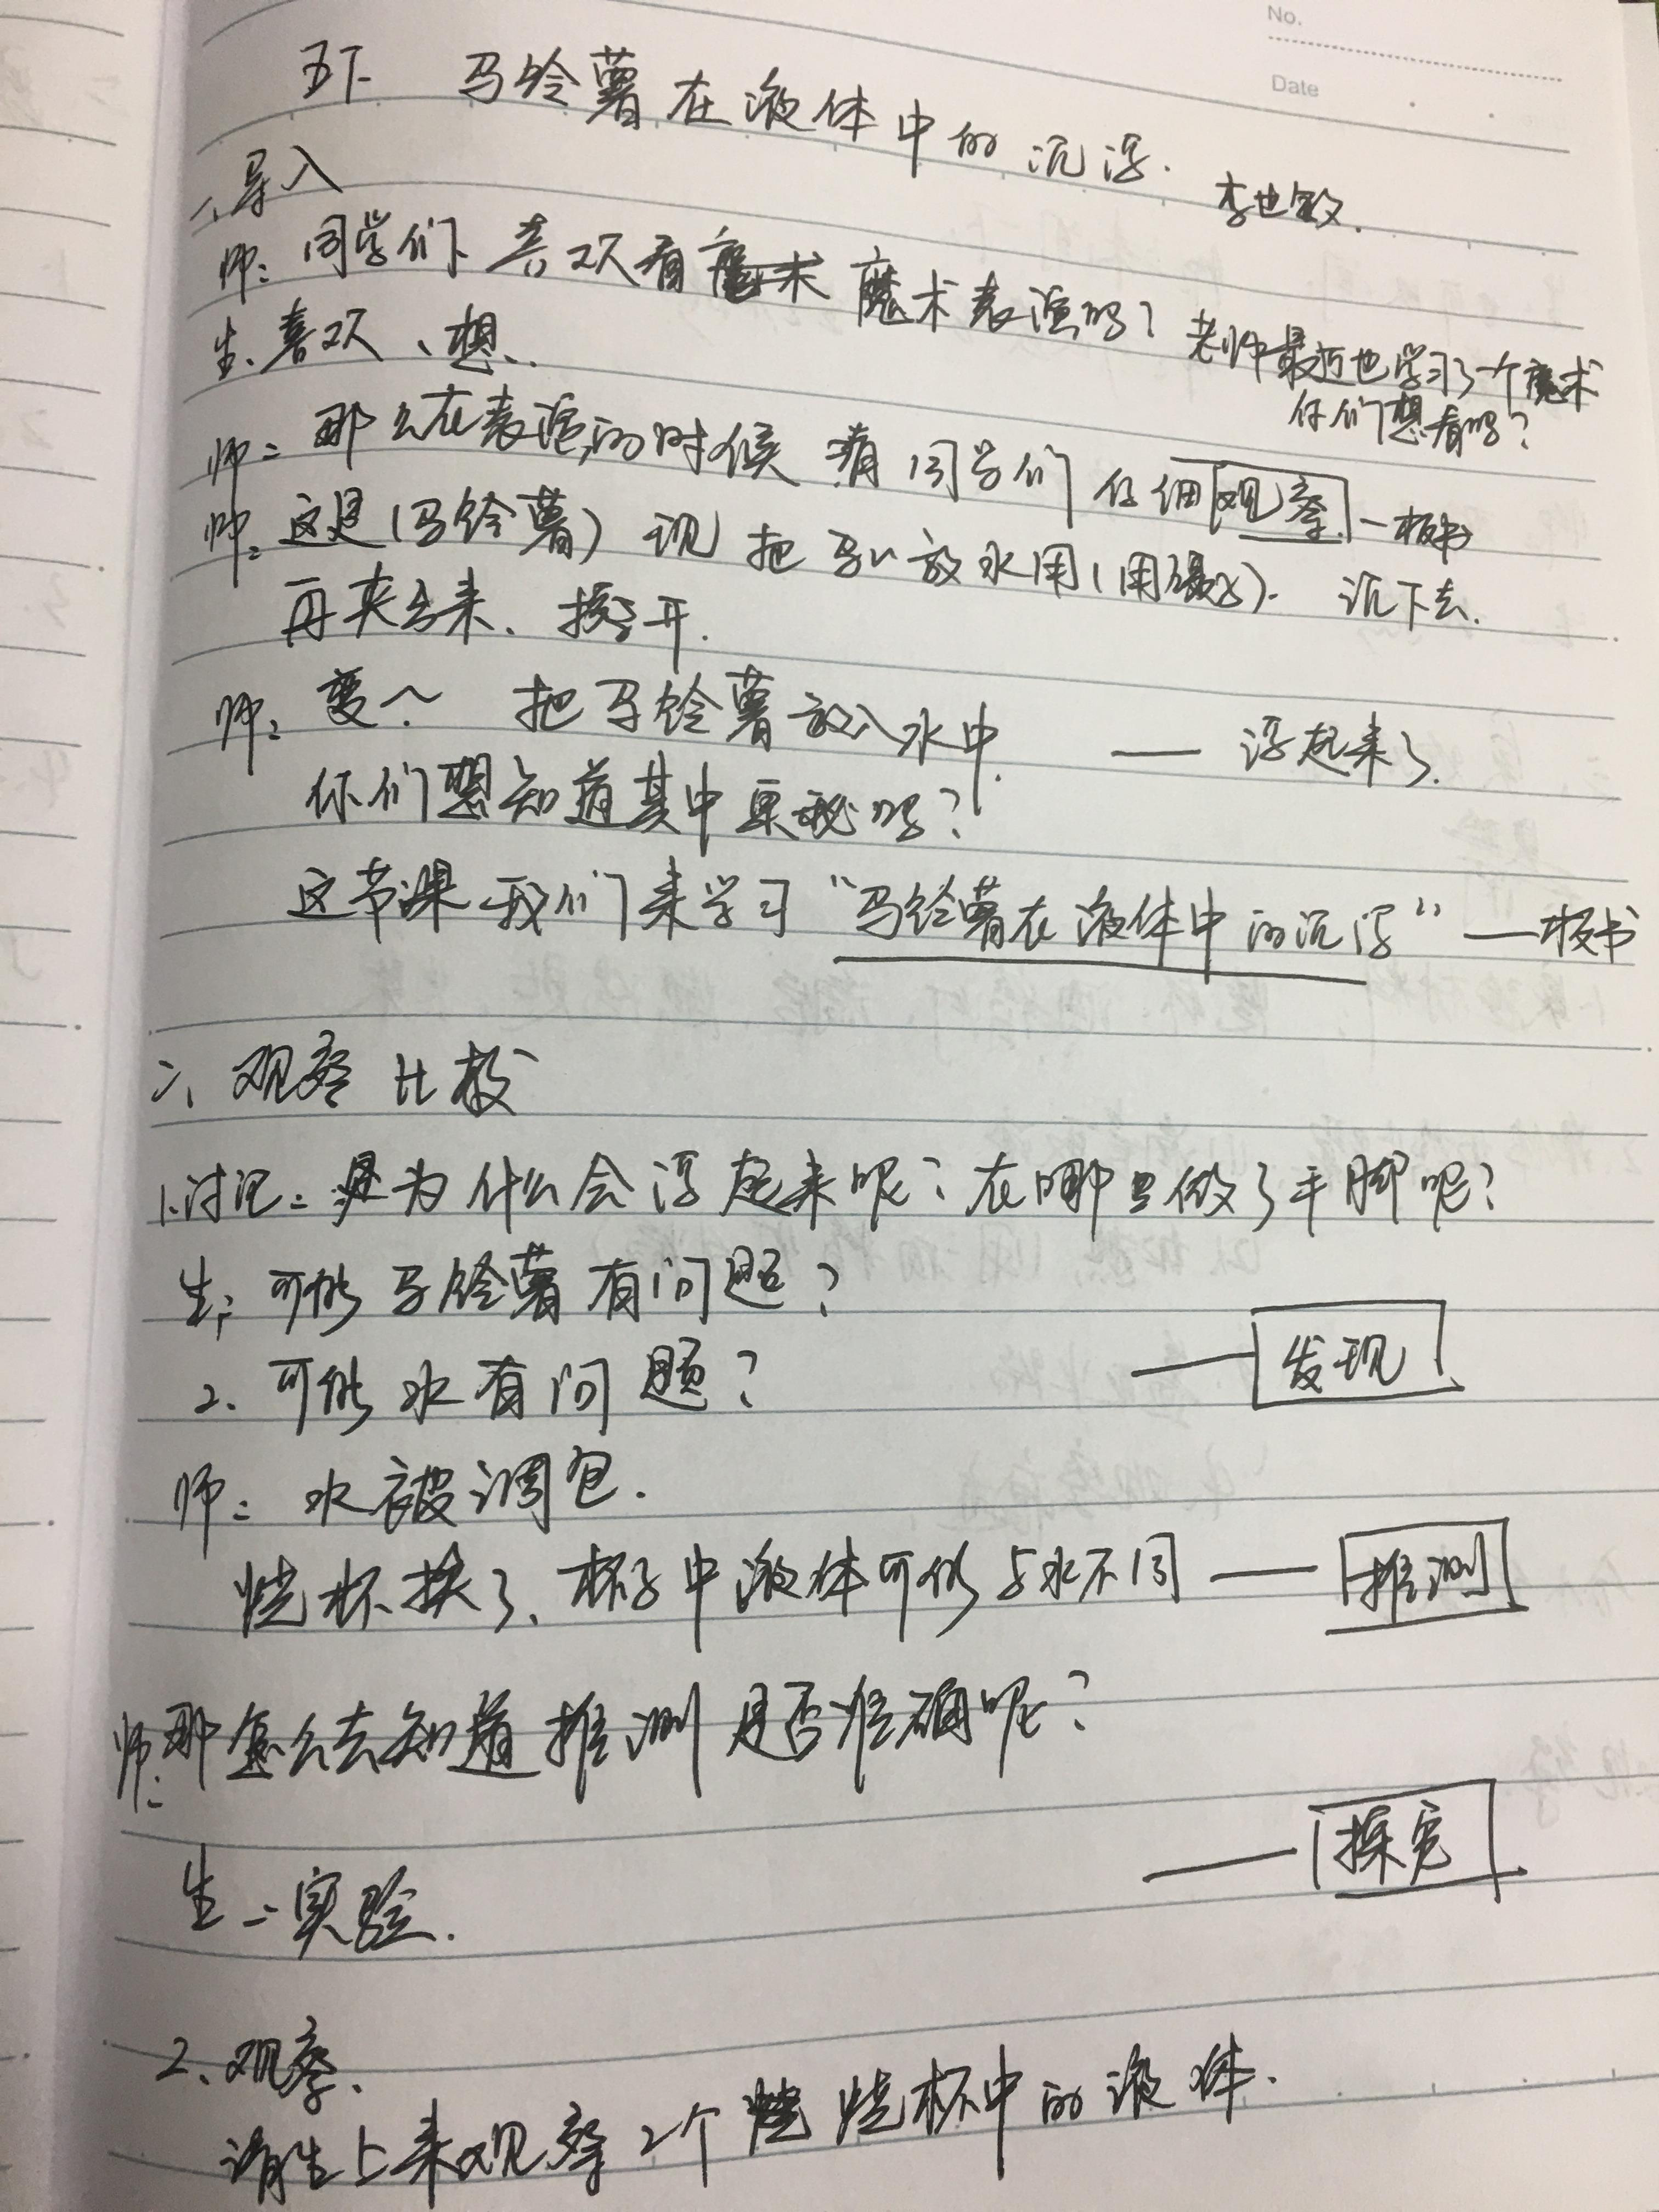 No.
Date
五下 马铃薯在液体中的沉浮.
李世敏.
一、导入
师: 同学们 喜欢看 魔术表演吗? 老师最近也学习了一个魔术
你们想看吗?
生、喜欢、想.
师: 那么在表演的时候 请同学们仔细观察.—板书
师: 这是(马铃薯) 现把马~放水里(用镊子). 沉下去.
再夹出来.
师: 变~ 把马铃薯放入水中. —— 浮起来了.
你们想知道其中奥秘吗?
这节课我们来学习“马铃薯在液体中的沉浮” ——板书
二、观察比较
1.讨论: 是为什么会浮起来呢? 在哪里做了手脚呢?
生: 可能马铃薯有问题?
2. 可能水有问题? —— 发现
师: 水被调包.
烧杯换了、杯子中液体可能与水不同 —— 推测
师: 那怎么去知道推测是否准确呢?
—— 探究
生: 实验.
2、观察、
请生上来观察2个烧杯中的液体.